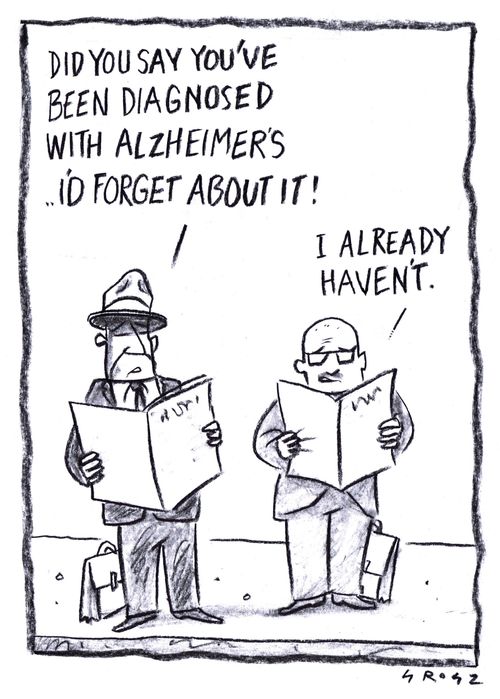 DID YOU SAY YOU'VE
BEEN DIAGNOSED
WITH ALZHEIMER'S
..I'D FORGET ABOUT IT!
I ALREADY
HAVEN'T.
GROSZ